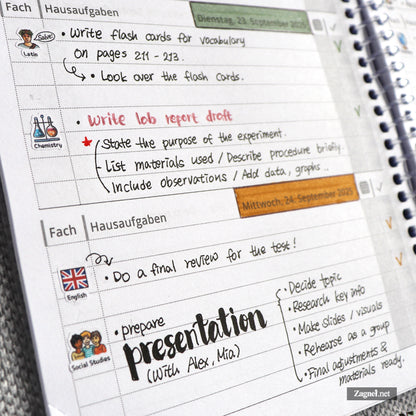 Fach Hausaufgaben
Dienstag, 23. September 2025
Salve!
Latin
• Write flash cards for vocabulary
on pages 211 - 213.
• Look over the flash cards.
Chemistry
• Write lab report draft
State the purpose of the experiment.
List materials used / Describe procedure briefly.
Include observations / Add data, graphs ..
Mittwoch, 24. September 2025
Fach Hausaufgaben
English
• Do a final review for the test!
Social Studies
• prepare
presentation
(With Alex, Mia)
• Decide topic
• Research key info
• Make slides / visuals
• Rehearse as a group
• Final adjustments &
materials ready.
Zagnel.net